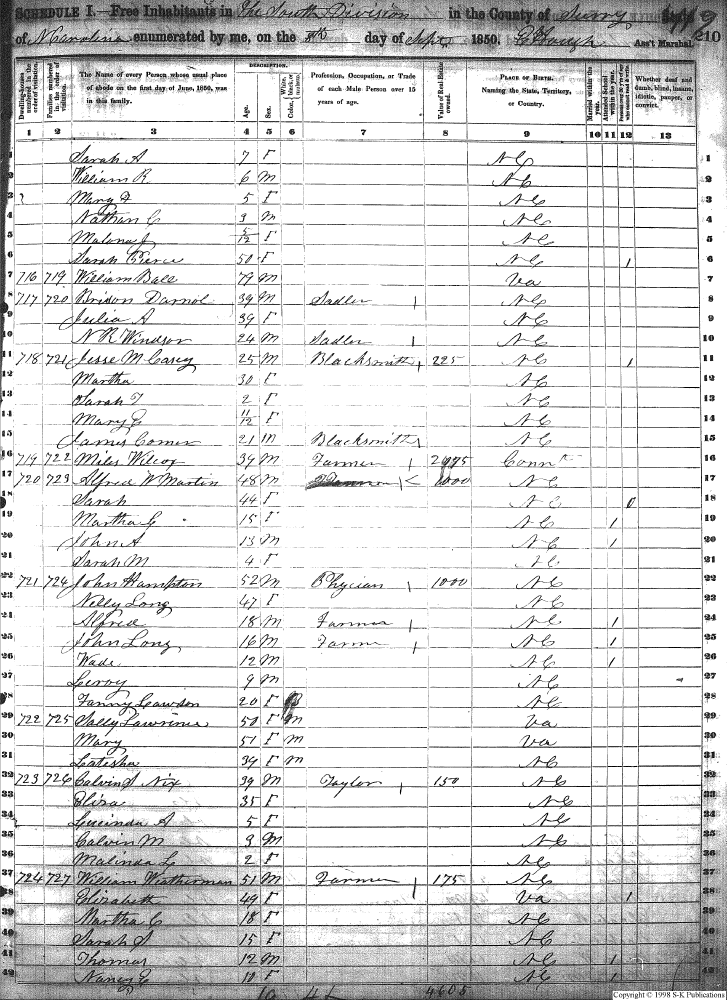 SCHEDULE I.—Free Inhabitants in The South Division in the County of Surry State 419
of N Carolina enumerated by me, on the day of Sept 1850. Ass't Marshal. 210
Dwelling-houses numbered in the order of visitation.
Families numbered in the order of visitation.
The Name of every Person whose usual place of abode on the first day of June, 1850, was in this family.
DESCRIPTION.
Age.
Sex.
White, black, or mulatto.
Color,
Profession, Occupation, or Trade of each Male Person over 15 years of age.
Value of Real Estate owned.
PLACE OF BIRTH. Naming the State, Territory, or Country.
Married within the year.
Attended School within the year.
Whether deaf and dumb, blind, insane, idiotic, pauper, or convict.
1 2 3 4 5 6 7 8 9 10 11 12 13
1 Sarah A 7 F NC 1
2 William R 6 M NC 2
3 Mary F 5 F NC 3
4 Nathan C 3 M NC 4
5 Malona J 5/12 F NC 5
6 Sarah Pierce 50 F NC 1 6
7 716 719 William Ball 79 M Va 7
8 717 720 Brison Darnol 39 M Sadler 1 NC 8
9 Julia A 39 F NC 9
10 N R Windsor 24 M Sadler 1 NC 10
11 718 721 Jesse M Casey 25 M Blacksmith 1 225 NC 1 11
12 Martha 30 F NC 12
13 Sarah T 2 F NC 13
14 Mary E 11/12 F NC 14
15 James Comer 21 M Blacksmith 1 NC 15
16 719 722 Miles Wilcox 39 M Farmer 1 Connt 16
17 720 723 Alfred W Martin 48 M 1000 NC 17
18 Sarah 44 F NC 18
19 Martha G 15 F NC 1 19
20 John A 13 M NC 1 20
21 Sarah M 4 F NC 21
22 721 724 John Hampton 52 M Phycian 1 1000 NC 22
23 Nelly Long 47 F NC 23
24 Alfred 18 M Farmer 1 NC 1 24
25 John Long 16 M Farmer 1 NC 1 25
26 Wade 12 M NC 1 26
27 Leroy 9 M NC 27
28 Fanny Lawson 20 F NC 28
29 722 725 Sally Lawrence 50 F M Va 29
30 Mary 51 F M Va 30
31 Latesha 39 F M NC 31
32 723 726 Calvin S Nix 39 M Taylor 1 150 NC 32
33 Eliza 35 F NC 33
34 Lucinda A 5 F NC 34
35 Calvin M 3 M NC 35
36 Malinda L 2 F NC 36
37 724 727 William Weatherman 51 M Farmer 1 175 NC 37
38 Elizabeth 49 F Va 1 38
39 Martha C 18 F NC 39
40 Sarah S 15 F NC 40
41 Thomas 12 M NC 1 41
42 Nancy E 10 F NC 1 42
4605
Copyright © 1998 S-K Publications